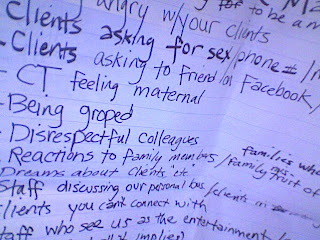 angry w/your clints
for to be a m
Clients asking for sex/phone #/in
- Clients asking to friend/on Facebook/
- CT feeling maternal
- Being groped
- Disrespectful colleagues
- Reactions to family members/family trust of
families who
Dreams about clients etc.
Staff discussing our personal bus/clients in
clients you can't connect with
Staff who see us as the entertainment/
implies)